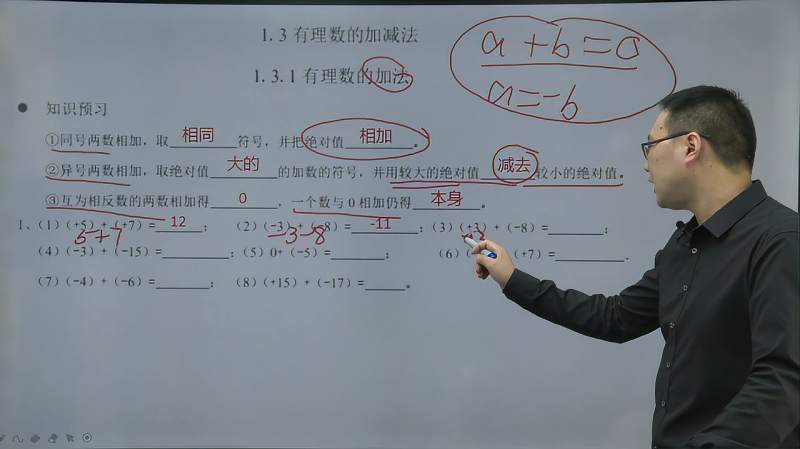 1.3 有理数的加减法
1.3.1 有理数的加法
a+b=0
a=-b
● 知识预习
①同号两数相加，取 相同 符号，并把绝对值 相加 。
②异号两数相加，取绝对值 大的 的加数的符号，并用较大的绝对值 减去 较小的绝对值。
③互为相反数的两数相加得 0 ，一个数与 0 相加仍得 本身 。
1、（1）（+5）+（+7）= 12 ；（2）（-3）+（-8）= -11 ；（3）（+3）+（-8）= ；
5+7 -3-8
（4）（-3）+（-15）= ；（5）0+（-5）= ；（6）（ （+7）= ．
（7）（-4）+（-6）= ；（8）（+15）+（-17）= 。